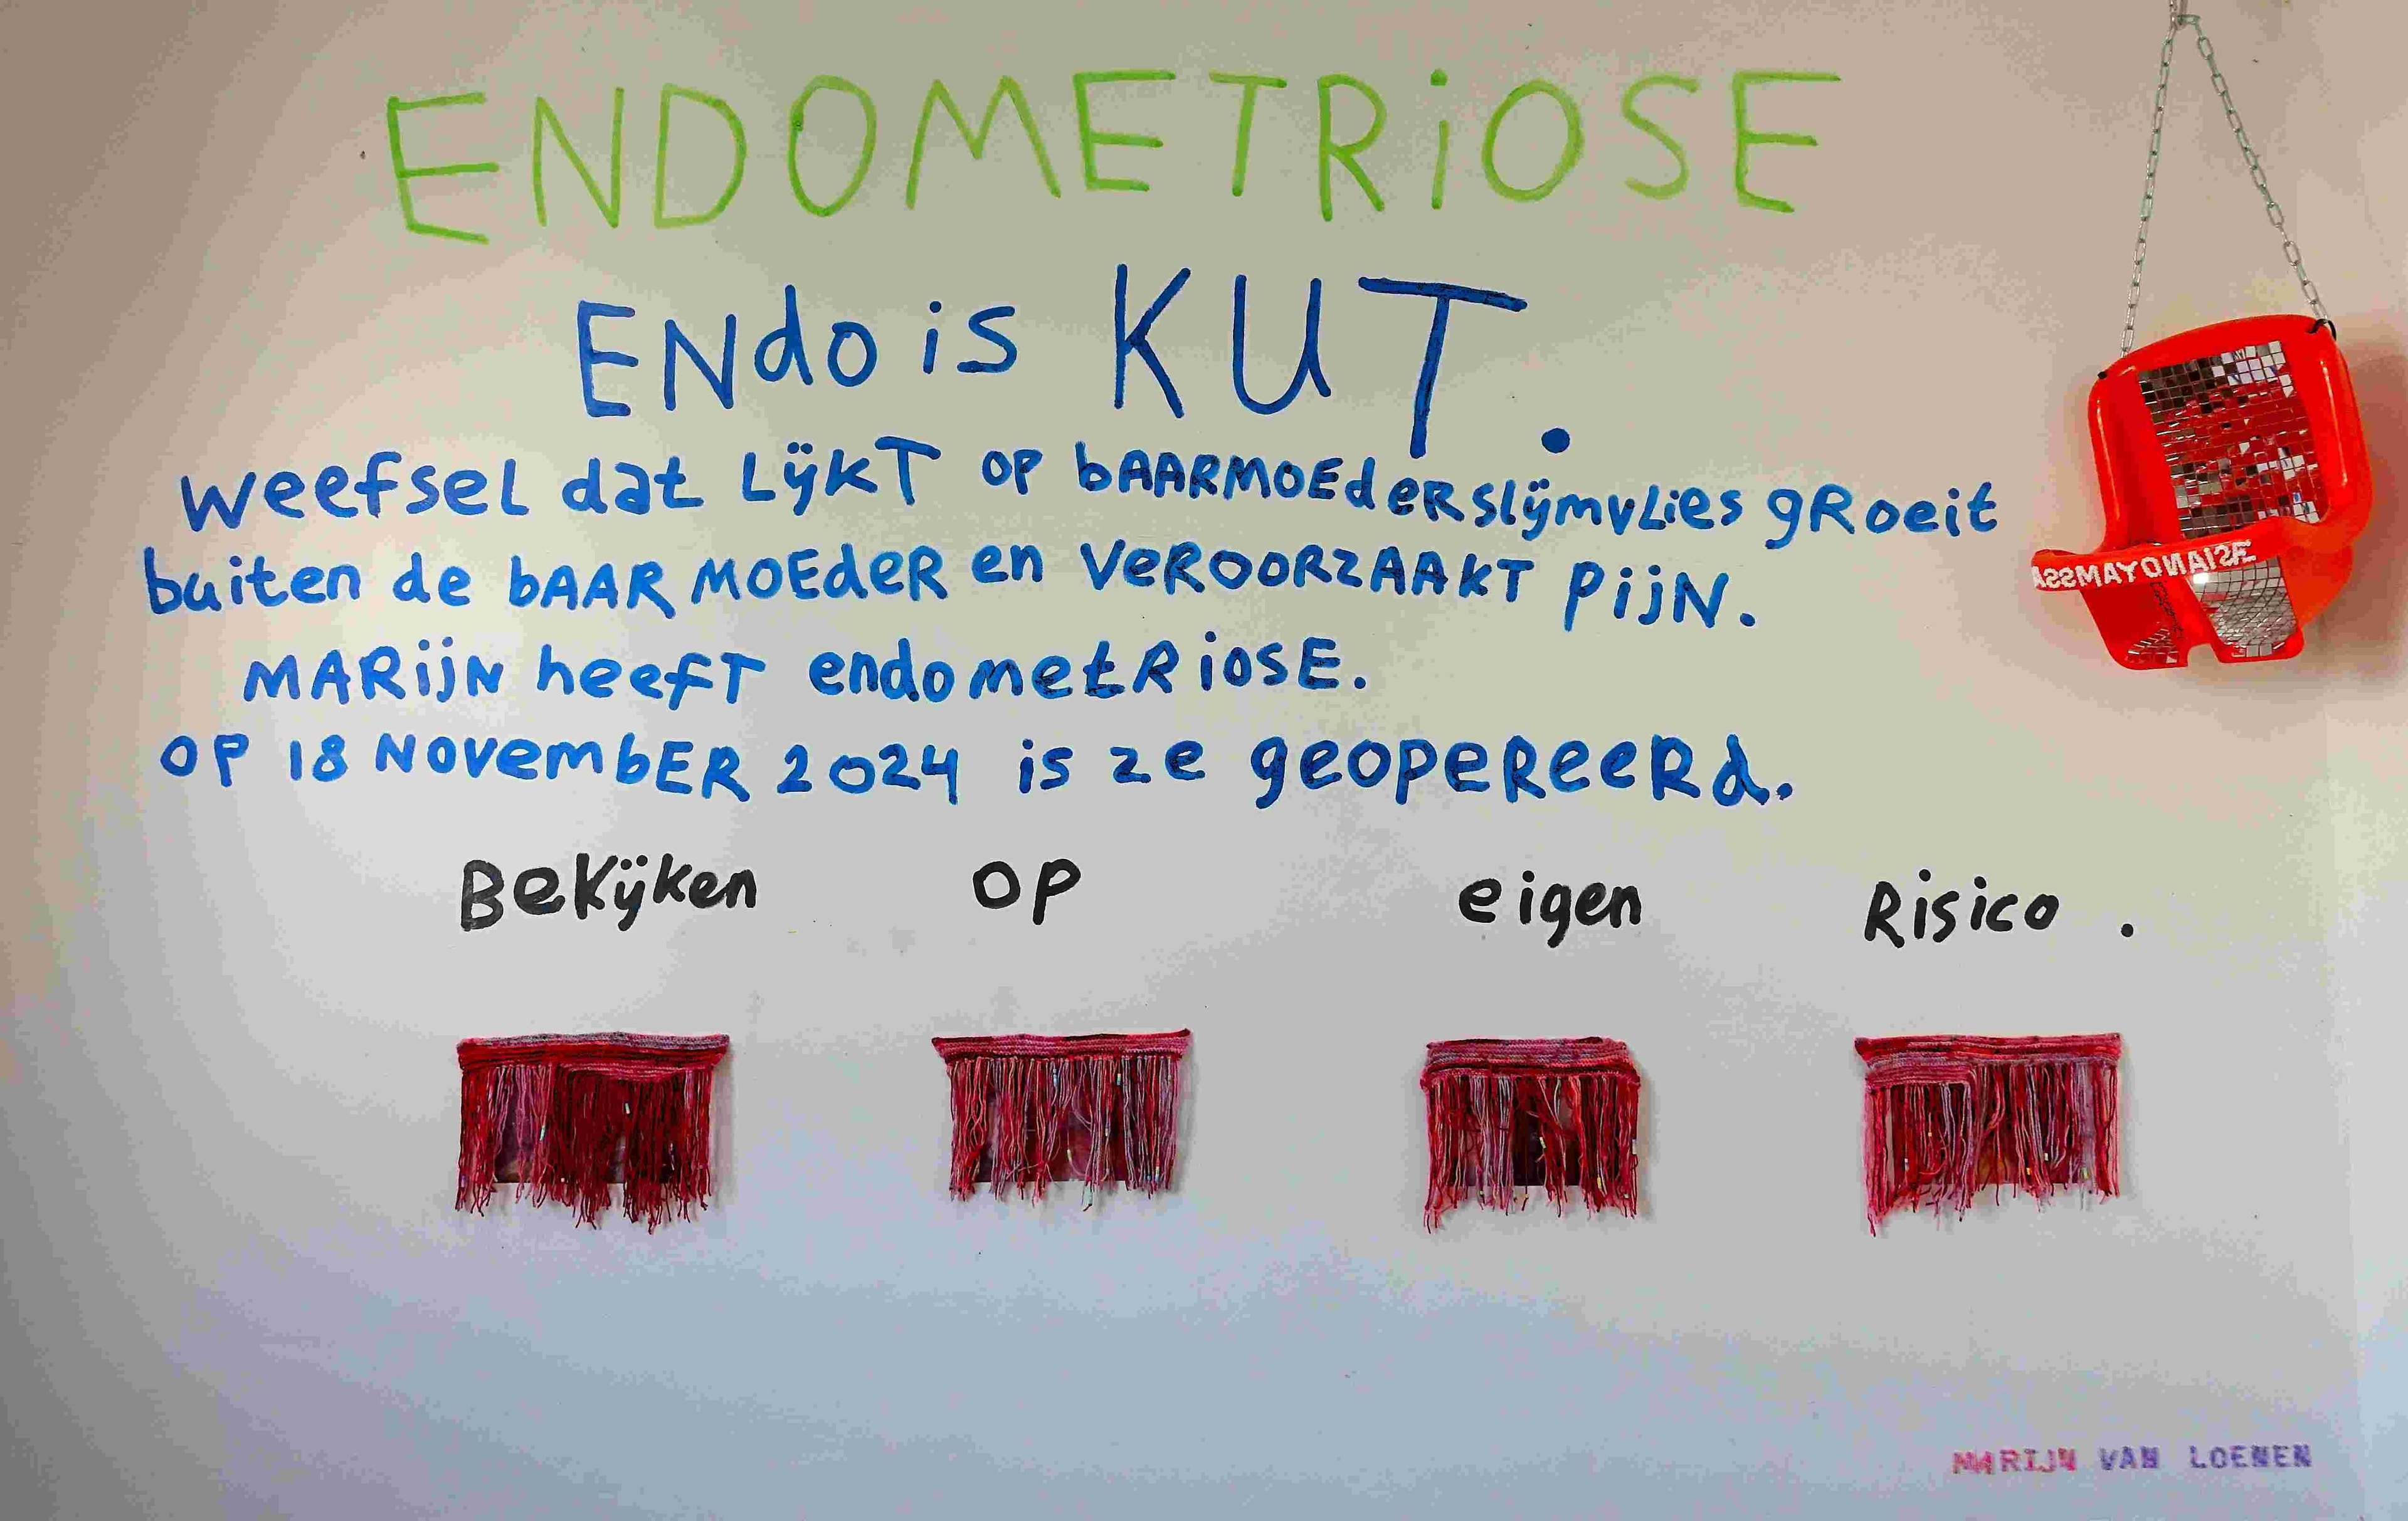 ENDOMETRiOSE
ENdo is KUT.
weefsel dat LÿkT op bAARMOEdeRslÿmvLies gRoeit
buiten de bAARMOEdeR en VeROORZAAkT pijN.
MARijN heefT endometRiosE.
OP 18 NovembER 2024 is ze geopeReeRd.
BeKÿken op eigen Risico.
ASSMAYONAISE
MARIJN VAN LOENEN